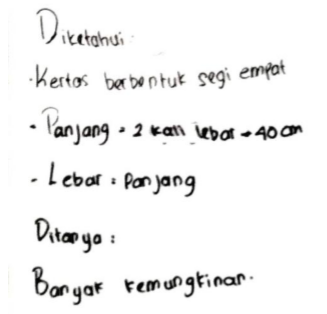 Diketahui:
· Kertas berbentuk segi empat
- Panjang = 2 kali lebar → 40 cm
- Lebar = Panjang
Ditanya :
Banyak kemungkinan.